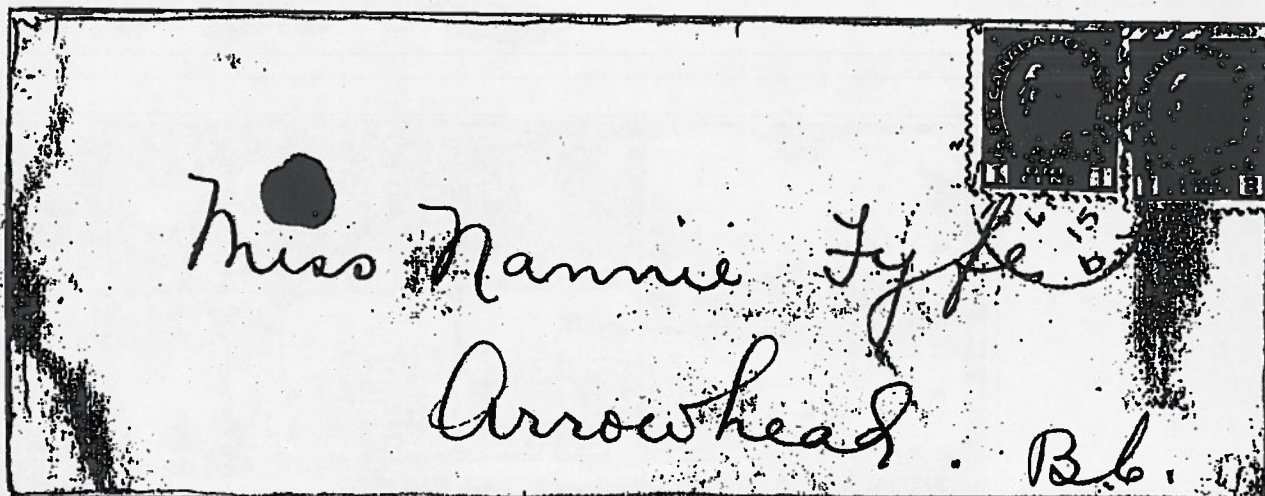 CANADA
Miss Nannie Fyfe
Arrowhead. B.C.